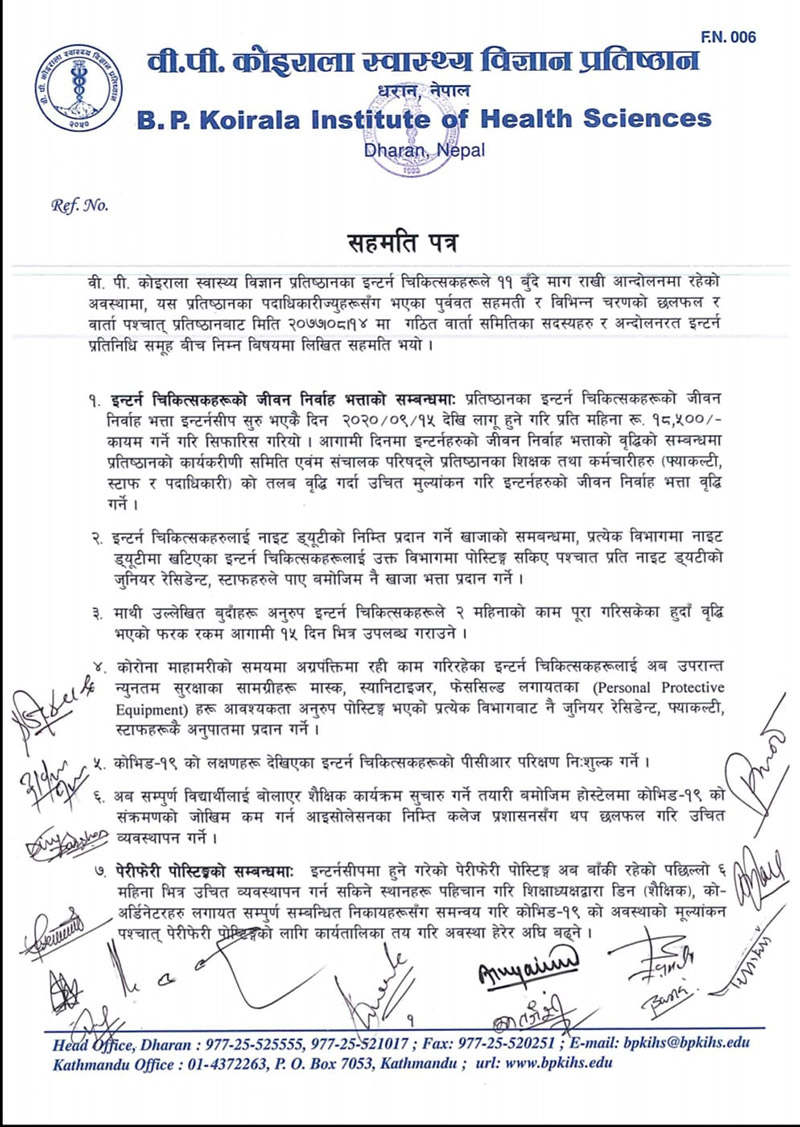 F.N. 006
वी.पी. कोइराला स्वास्थ्य विज्ञान प्रतिष्ठान
धरान, नेपाल
B. P. Koirala Institute of Health Sciences
Dharan, Nepal
Ref. No.
सहमति पत्र
वी. पी. कोइराला स्वास्थ्य विज्ञान प्रतिष्ठानका इन्टर्न चिकित्सकहरूले ११ बुँदे माग राखी आन्दोलनमा रहेको
अवस्थामा, यस प्रतिष्ठानका पदाधिकारीज्युहरूसँग भएका पुर्ववत सहमती र विभिन्न चरणको छलफल र
वार्ता पश्चात् प्रतिष्ठानबाट मिति २०७७०८।१४ मा गठित वार्ता समितिका सदस्यहरु र अन्दोलनरत इन्टर्न
प्रतिनिधि समूह बीच निम्न विषयमा लिखित सहमति भयो ।
१. इन्टर्न चिकित्सकहरूको जीवन निर्वाह भत्ताको सम्बन्धमाः प्रतिष्ठानका इन्टर्न चिकित्सकहरूको जीवन
निर्वाह भत्ता इन्टर्नसीप सुरु भएकै दिन २०२०/०९/१५ देखि लागू हुने गरि प्रति महिना रू. १८,५००/-
कायम गर्ने गरि सिफारिस गरियो । आगामी दिनमा इन्टर्नहरुको जीवन निर्वाह भत्ताको वृद्धिको सम्बन्धमा
प्रतिष्ठानको कार्यकरीणी समिति एवंम संचालक परिषद्ले प्रतिष्ठानका शिक्षक तथा कर्मचारीहरु (फ्याकल्टी,
स्टाफ र पदाधिकारी) को तलब वृद्धि गर्दा उचित मुल्यांकन गरि इन्टर्नहरुको जीवन निर्वाह भत्ता वृद्धि
गर्ने ।
२. इन्टर्न चिकित्सकहरुलाई नाइट ड्यूटीको निम्ति प्रदान गर्ने खाजाको समबन्धमा, प्रत्येक विभागमा नाइट
ड्यूटीमा खटिएका इन्टर्न चिकित्सकहरुलाई उक्त विभागमा पोस्टिङ्ग सकिए पश्चात प्रति नाइट ड्यटीको
जुनियर रेसिडेन्ट, स्टाफहरुले पाए बमोजिम नै खाजा भत्ता प्रदान गर्ने ।
३. माथी उल्लेखित बुदाँहरू अनुरुप इन्टर्न चिकित्सकहरूले २ महिनाको काम पूरा गरिसकेका हुदाँ वृद्धि
भएको फरक रकम आगामी १५ दिन भित्र उपलब्ध गराउने ।
४. कोरोना माहामरीको समयमा अग्रपंक्तिमा रही काम गरिरहेका इन्टर्न चिकित्सकहरूलाई अब उपरान्त
न्युनतम सुरक्षाका सामग्रीहरू मास्क, स्यानिटाइजर, फेससिल्ड लगायतका (Personal Protective
Equipment) हरू आवश्यकता अनुरुप पोस्टिङ्ग भएको प्रत्येक विभागबाट नै जुनियर रेसिडेन्ट, फ्याकल्टी,
स्टाफहरूकै अनुपातमा प्रदान गर्ने ।
५. कोभिड-१९ को लक्षणहरू देखिएका इन्टर्न चिकित्सकहरूको पीसीआर परिक्षण निःशुल्क गर्ने ।
६. अब सम्पुर्ण विद्यार्थीलाई बोलाएर शैक्षिक कार्यक्रम सुचारु गर्ने तयारी बमोजिम होस्टेलमा कोभिड-१९ को
संक्रमणको जोखिम कम गर्न आइसोलेसनका निम्ति कलेज प्रशासनसँग थप छलफल गरि उचित
व्यवस्थापन गर्ने ।
७. पेरीफेरी पोस्टिङ्गको सम्बन्धमाः इन्टर्नसीपमा हुने गरेको पेरीफेरी पोस्टिङ्ग अब बाँकी रहेको पछिल्लो ६
महिना भित्र उचित व्यवस्थापन गर्न सकिने स्थानहरू पहिचान गरि शिक्षाध्यक्षद्वारा डिन (शैक्षिक), को-
अर्डिनेटरहरु लगायत सम्पुर्ण सम्बन्धित निकायहरूसँग समन्वय गरि कोभिड-१९ को अवस्थाको मूल्यांकन
पश्चात् पेरीफेरी पोस्टिङ्गको लागि कार्यतालिका तय गरि अवस्था हेरेर अघि बढ्ने ।
१
Head Office, Dharan : 977-25-525555, 977-25-521017 ; Fax: 977-25-520251 ; E-mail: bpkihs@bpkihs.edu
Kathmandu Office : 01-4372263, P. O. Box 7053, Kathmandu ; url: www.bpkihs.edu